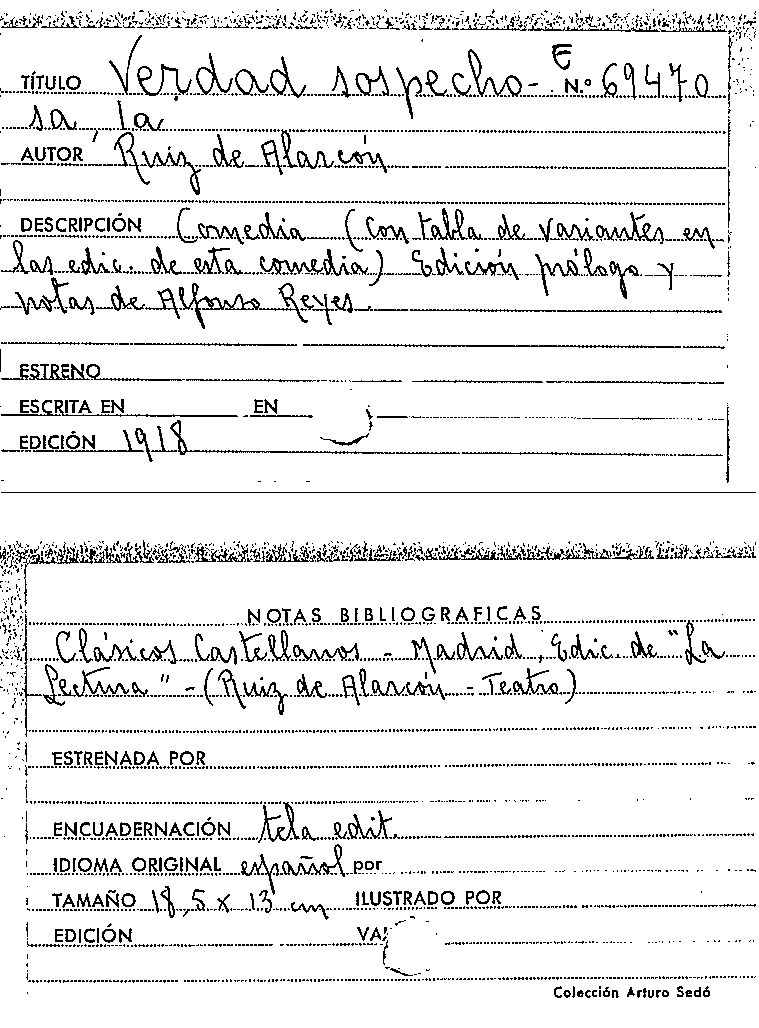 TÍTULO Verdad sospecho- E N.º 69470
sa, la
AUTOR Ruiz de Alarcón
DESCRIPCIÓN Comedia (Con tabla de variantes en
las edic. de esta comedia) Edición prólogo y
notas de Alfonso Reyes.
ESTRENO
ESCRITA EN EN
EDICIÓN 1918
NOTAS BIBLIOGRAFICAS
Clásicos Castellanos - Madrid, Edic. de "La
Lectura" - (Ruiz de Alarcón - Teatro)
ESTRENADA POR
ENCUADERNACIÓN tela edit.
IDIOMA ORIGINAL español por
TAMAÑO 18,5 x 13 cm ILUSTRADO POR
EDICIÓN
Colección Arturo Sedó